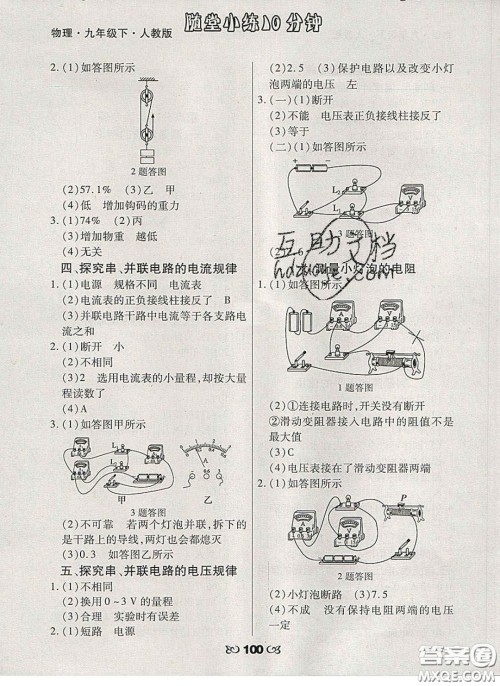 物理·九年级下·人教版
随堂小练10分钟
2.(1)如答图所示
2题答图
(2)57.1% (3)乙 甲
(4)低 增加钩码的重力
3.(1)74% (2)丙
(3)增加物重 越低
(4)无关
四、探究串、并联电路的电流规律
1.(1)电源 规格不同 电流表
(2)电流表的正负接线柱接反了 B
(3)并联电路干路中电流等于各支路电
流之和
2.(1)断开 小
(2)不相同
(3)2 选用电流表的小量程,却按大量
程读数了
(4)A
3.(1)如答图甲所示
甲 乙
3题答图
(2)不可靠 若两个灯泡并联,拆下的
是干路上的导线,两灯也会都熄灭
(3)0.3 如答图乙所示
五、探究串、并联电路的电压规律
1.(1)不相同
(2)换用0~3V的量程
(3)合理 实验时有误差
2.(1)短路 电源
(2)2.5 (3)保护电路以及改变小灯
泡两端的电压 左
3.(一)(1)断开
(2)不能 电压表正负接线柱接反了
(3)等于
(二)(1)如答图所示
L₁
L₂
3题答图
互助文档
hdzuoye.com
测量小灯泡的电阻
1.(1)如答图所示
A
V
1题答图
(2)①连接电路时,开关没有断开
②滑动变阻器接入电路中的阻值不是
最大值
(3)C
(4)电压表接在了滑动变阻器两端
2.(1)如答图所示
P
2题答图
(2)小灯泡断路 (3)7.5
(4)不成 没有保持电阻两端的电压
一定
100
答案圈
MXQE.COM